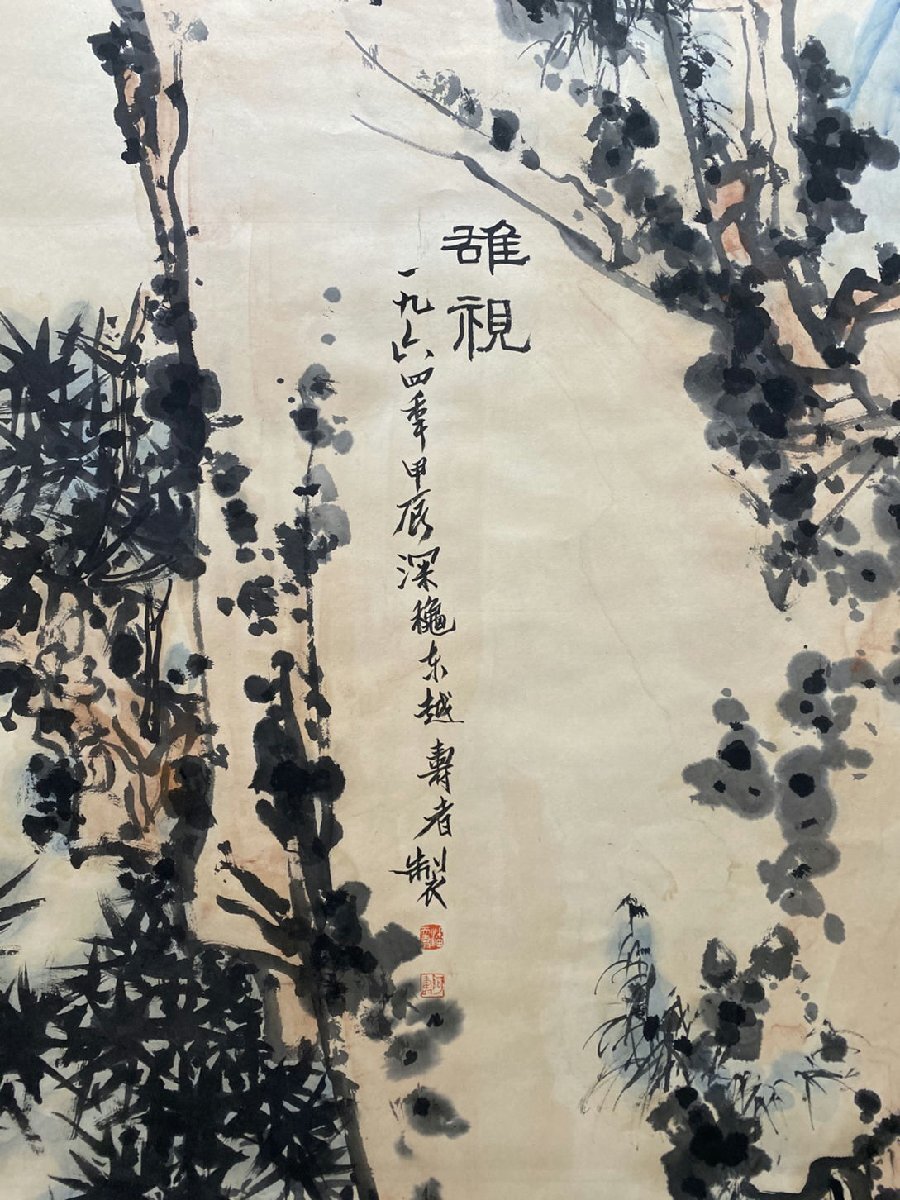 雄視
一九六四年甲辰深穐东越壽者製